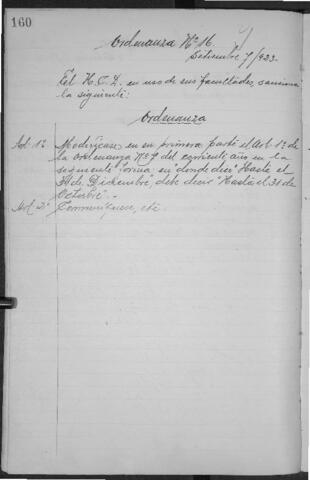 160
Ordenanza Nº 16
Setiembre 7/923.
El H.C.D. en uso de sus facultades, sanciona
la siguiente:
Ordenanza
Art. 1º Modifícase en su primera parte el Art 1º de
la Ordenanza Nº 9 del corriente año en la
siguiente forma en donde dice "Hasta el
de Diciembre", debe decir "Hasta el 31 de
Octubre".
Art. 2º Comuníquese, etc.